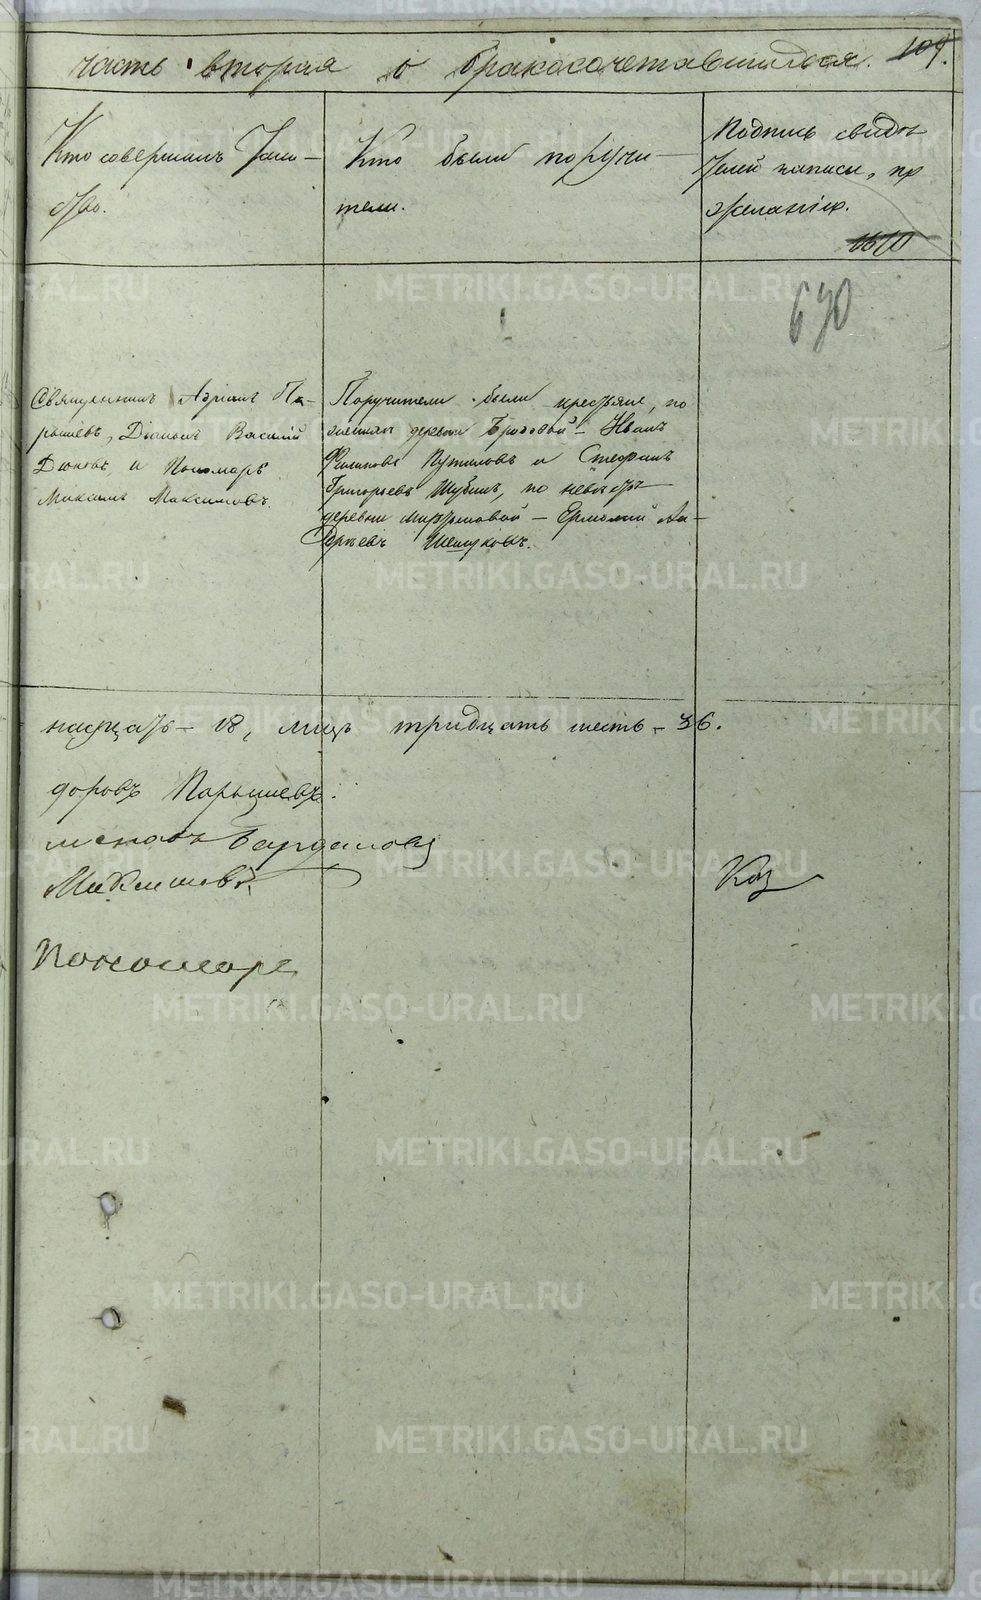 часть вторая о бракосочетавшихся. 109.
Кто совершалъ Таин-
ство.
Кто были поручи-
тели.
Подпись свидѣ
телей записи, по
желанію.
1670
690
Священникъ Адріанъ Па-
рышевъ, Діаконъ Василій
Дюковъ и Пономарь
Максимъ Максимовъ.
Поручители были крестьяне, по
женихѣ деревни Бродовой - Иванъ
Филиповъ Путиловъ и Стефанъ
Григорьевъ Шубинъ, по невѣстѣ
деревни - Ермолай Ан-
дреевъ
надцать - 18, лицъ тридцать шесть - 36.
доровъ Парышевъ.
Пономарь
METRIKI.GASO-URAL.RU